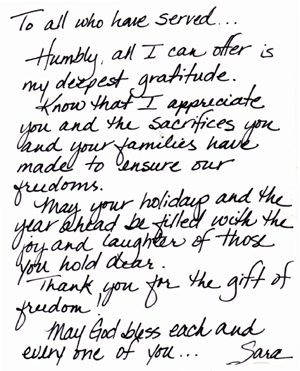 To all who have served...
Humbly, all I can offer is
my deepest gratitude.
Know that I appreciate
you and the sacrifices you
and your families have
made to ensure our
freedoms.
May your holidays and the
year ahead be filled with the
joy and laughter of those
you hold dear.
Thank you for the gift of
freedom!
May God bless each and
every one of you... Sara